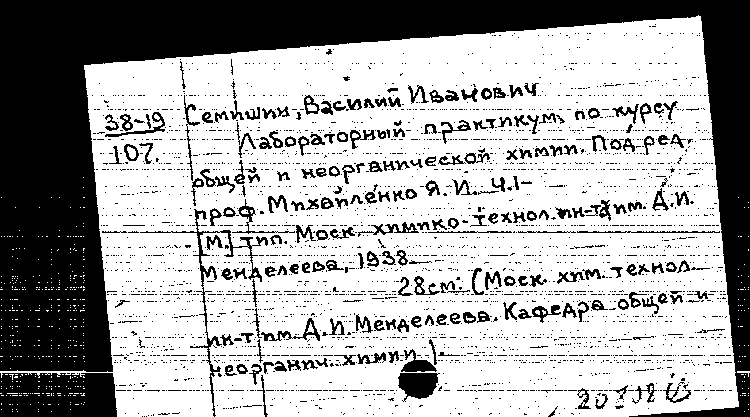 38-19
107.
Семишин, Василий Иванович
Лабораторный практикум по курсу
общей и неорганической химии. Под ред.
проф. Михайленко Я. И. Ч.1-
[М.] тип. Моск. химико-технол. ин-та им. Д.И.
Менделеева, 1938.
28 см. (Моск. хим. технол.
ин-т им. Д.И. Менделеева. Кафедра общей и
неорганич. химии).